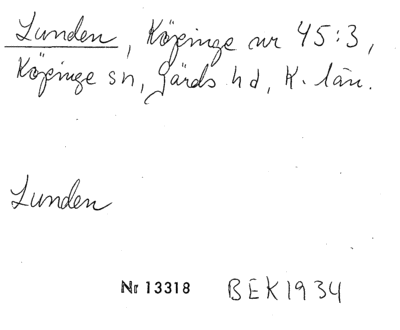 Lunden, Köpinge nr 45:3,
Köpinge sn, Gärds hd, K. län.
Lunden
Nr 13318 BEK1934